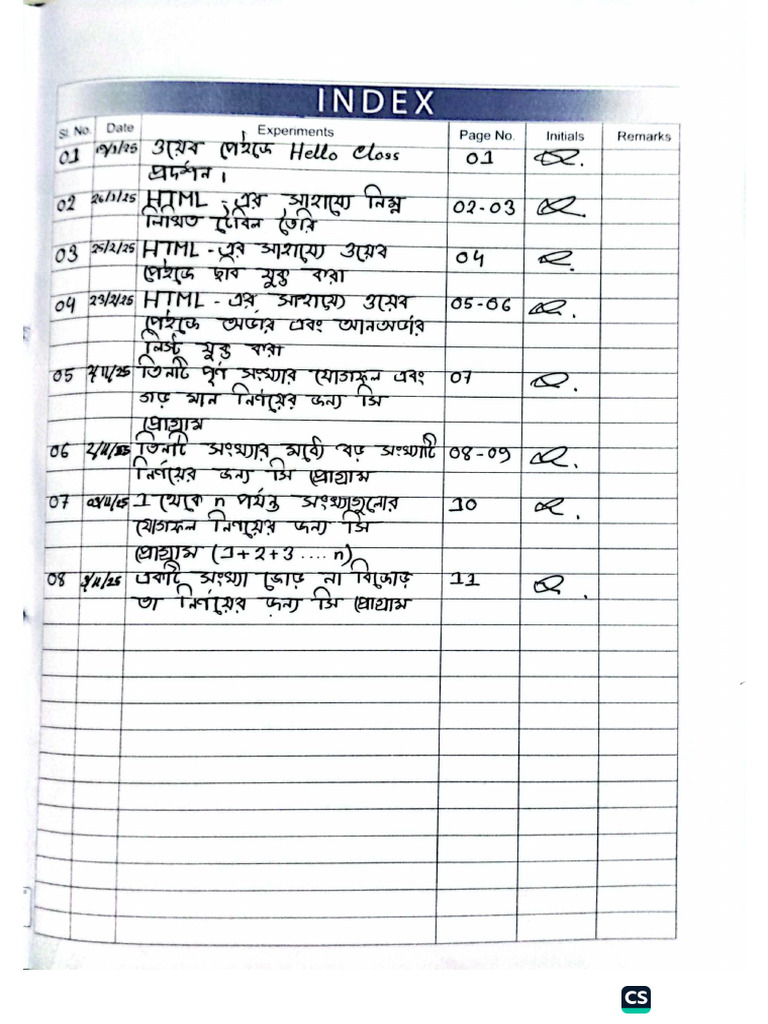 INDEX
Sl. No. Date Experiments Page No. Initials Remarks
01 19/1/25 ওয়েব পেইজে Hello Class 01
প্রদর্শন।
02 26/1/25 HTML -এর সাহায্যে নিম্ন 02-03
লিখিত টেবিল তৈরি
03 25/2/25 HTML -এর সাহায্যে ওয়েব 04
পেইজে ছবি যুক্ত করা
04 23/2/25 HTML -এর সাহায্যে ওয়েব 05-06
পেইজে অর্ডার এবং আনঅর্ডার
লিস্ট যুক্ত করা
05 তিনটি পূর্ণ সংখ্যার যোগফল এবং 07
গড় মান নির্ণয়ের জন্য সি
প্রোগ্রাম
06 তিনটি সংখ্যার মধ্যে বড় সংখ্যাটি 08-09
নির্ণয়ের জন্য সি প্রোগ্রাম
07 1 থেকে n পর্যন্ত সংখ্যাগুলোর 10
যোগফল নির্ণয়ের জন্য সি
প্রোগ্রাম (1+2+3 .... n)
08 একটি সংখ্যা জোড় না বিজোড় 11
তা নির্ণয়ের জন্য সি প্রোগ্রাম
CS